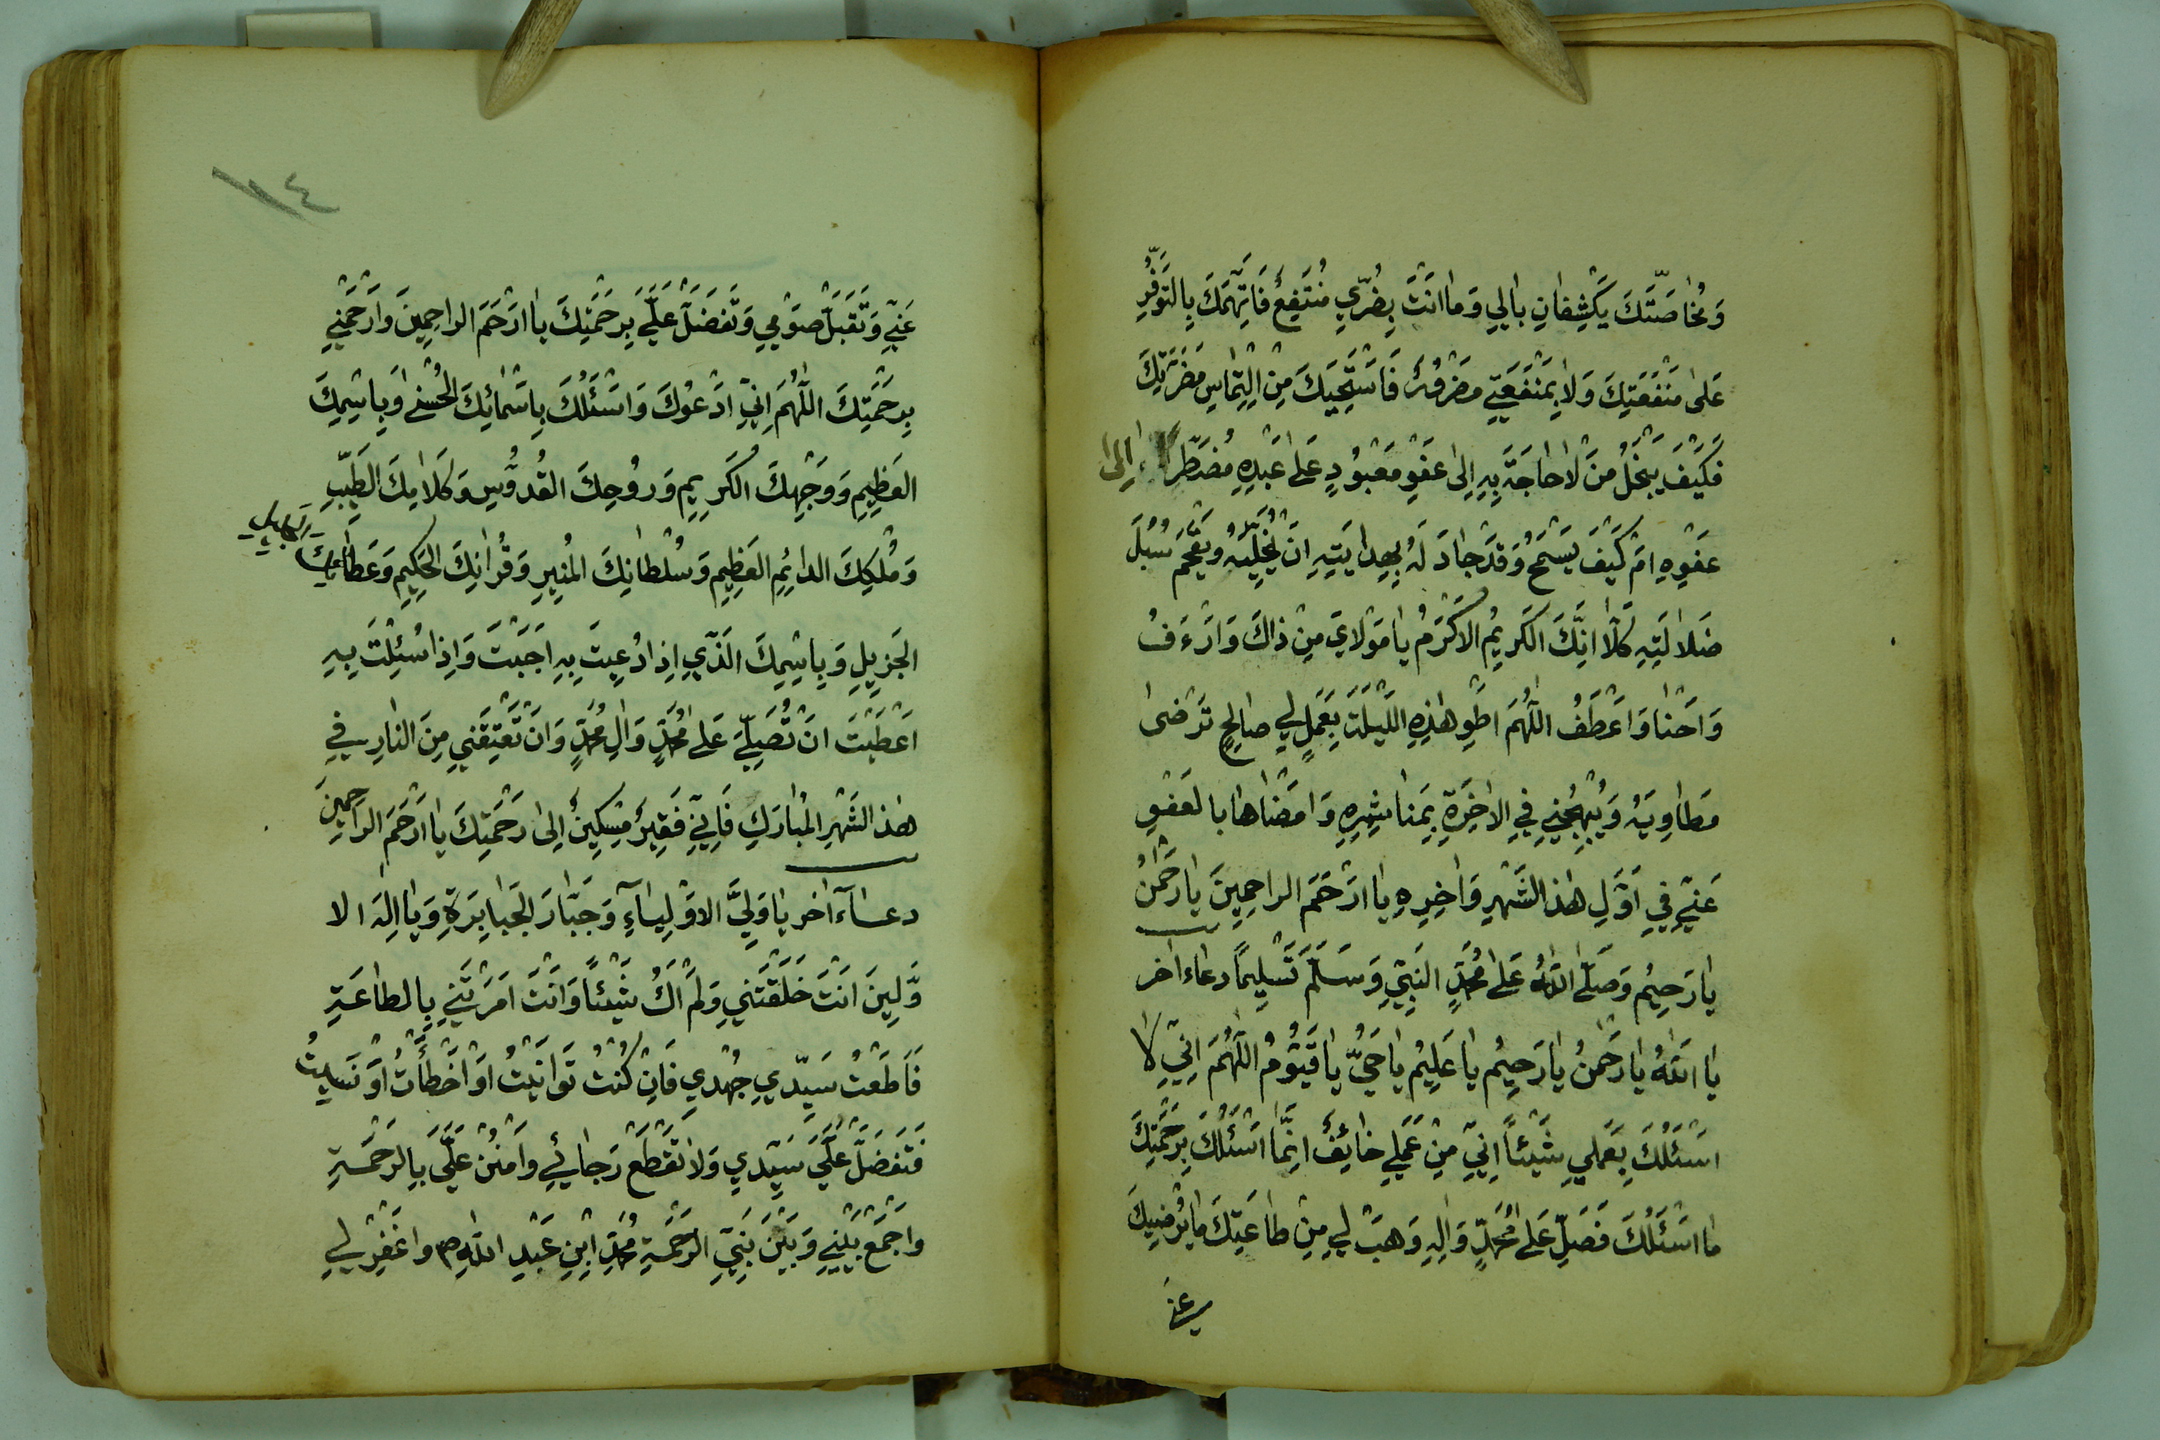 وَمُخاصَّتَكَ يَكْشِفانِ بالِي وَما انَتْ بِضُرّي مُنْتَفِعٌ فَاتِّهمَكَ بِالتَوَفُّرِ
عَلىٰ مَنْفَعَتِكَ وَلا بِمَنْفَعَتِي مَضرورٌ فَاَسْتَحْيِيَكَ مِنْ اِلْتِماسِ مَضَرَّتِكَ
فَكَيْفَ يَبْخَلُ مَنْ لا حاجَةَ بِهِ اِلىٰ عَفْوِ مَعْبُودٍ عَلىٰ عَبْدِهِ مُضطَرّ اِلىٰ
عَفْوِهِ امْ كَيْفَ يَسْمَحُ وَقَدْ جادَ لَهُ بِهِدايَتِهِ انْ يُخَلِّيَهُ وَيَقْحَمَ سُبُلَ
ضَلالَتِهِ كَلّا انَّكَ الكَريمُ الاكْرَمُ يا مَوْلايَ مِنْ ذلكَ وَارْءَفُ
وَاَحْنا وَاَعْطَفُ اللّهُمَّ اطْوِ هٰذِهِ اللَّيْلَةَ بِعَمَلٍ لي صالِحٍ تَرْضىٰ
مَطاوِيَهُ وَيُبْهِجُنِي فِي الاخِرَةِ بِمَناشِرِهِ وَامضاها بالعَفْوِ
عَنّي في اَوَّلِ هٰذا الشَّهْرِ وَاخِرِهِ يا ارْحَمَ الراحِمِينَ يا رَحْمٰنُ
يا رَحِيُم وَصَلَّى اللهُ عَلىٰ مُحَمَّدٍ النَبِيِّ وَسَلَّمَ تَسْليمًا دعاء اخر
يا اللهُ يا رَحْمٰنُ يا رَحِيُم يا عَلِيُم يا حَيُّ يا قَيُّومُ اللّهُمَّ اِنّي لا
اسْئَلُكَ بِعَمَلي شَيْئاً اِنّي مِنْ عَمَلي خائِفٌ انَّما اسْئَلُكَ بِرَحْمَتِكَ
ما اسْئَلُكَ فَصَلِّ عَلىٰ مُحَمَّدٍ وَالِهِ وَهَبْ لي مِنْ طاعَتِكَ ما يُرْضيكَ
عني
١١٤
عَنّي وَتَقَبَلْ صَوْمي وَتَفَضَلْ عَلَيَّ بِرَحْمَتِكَ يا ارْحَمَ الراحِمِينَ وَارْحَمْني
بِرَحْمَتِكَ اللّهُمَّ اِنّي ادْعُوكَ وَاسْئَلُكَ بِاَسْمائِكَ الحُسْنىٰ وَبِاسْمِكَ
العَظِيمِ وَوَجْهِكَ الكَرِيمِ وَرُوحِكَ القُدّوسِ وَكَلامِكَ الطَيّبِ
وَمُلْكِكَ الدائِمِ العَظِيمِ وَسُلْطانِكَ المُنِيرِ وَقُرْانِكَ الحَكِيمِ وَعَطائِكَ
الجَزِيلِ وَبِاسْمِكَ الَذي اِذا دُعِيتَ بِهِ اَجَبْتَ وَاِذا سُئِلْتَ بِهِ
اَعْطَيْتَ انْ تُصَلِّيَ عَلىٰ مُحَمَّدٍ وَالِ مُحَمَّدٍ وَانْ تُعْتِقَني مِنَ النارِ في
هٰذا الشَهْرِ المُبارَكِ فَاِنّي فَقِيرٌ مِسْكِينٌ اِلىٰ رَحْمَتِكَ يا ارْحَمَ الراحِمِينَ
دعاء آخر يا وَلِيَّ الاوْلِياءِ وَجَبّارَ الجَبابِرَةِ وَيا اِلهَ الا
وَّلِينَ انْتَ خَلَقْتَني وَلَمْ اَكُ شَيْئاً وَانْتَ امَرْتَني بِالطاعَةِ
فَاَطَعْتُ سَيّدي جُهْدي فَاِنْ كُنْتُ تَوانَيْتُ اوْ اَخْطَأْتُ اوْ نَسيتُ
فَتَفَضَّلْ عَلَيَّ سَيّدي وَلا تَقْطَعْ رَجائي وَامْنُنْ عَلَيَّ بِالرَحْمَةِ
وَاجْمَعْ بَيْني وَبَيْنَ نَبِيِّ الرَحْمَةِ مُحَمَّدِ ابْنِ عَبْدِ اللهِ ص وَاغْفِرْ لي